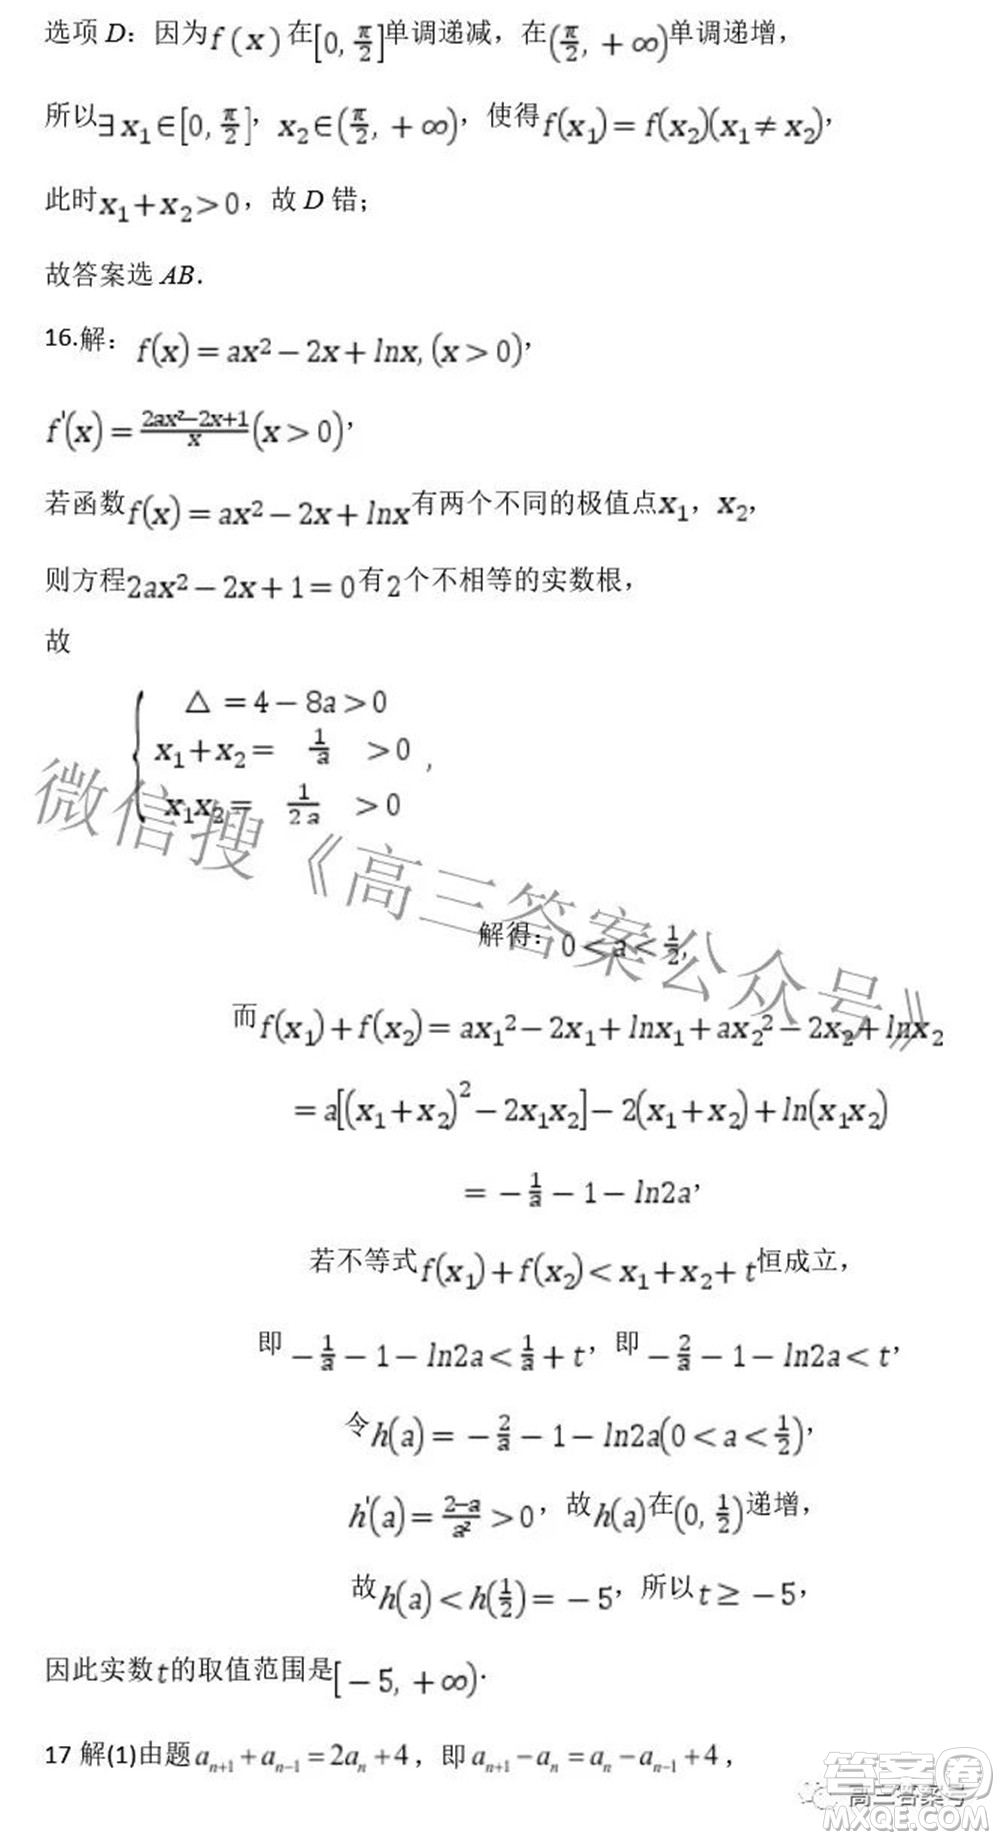 选项 D：因为f(x)在[0, π/2]单调递减，在(π/2, +∞)单调递增，
所以∃x₁∈[0, π/2]，x₂∈(π/2, +∞)，使得f(x₁)=f(x₂)(x₁≠x₂)，
此时x₁+x₂>0，故 D 错；
故答案选 AB．
16.解：f(x)=ax²−2x+lnx,(x>0)，
f'(x)=(2ax²−2x+1)/x(x>0)，
若函数f(x)=ax²−2x+lnx有两个不同的极值点x₁，x₂，
则方程2ax²−2x+1=0有2个不相等的实数根，
故
△=4−8a>0
x₁+x₂= 1/a >0，
x₁x₂= 1/2a >0
解得：0<a<1/2，
而f(x₁)+f(x₂)=ax₁²−2x₁+lnx₁+ax₂²−2x₂+lnx₂
=a[(x₁+x₂)²−2x₁x₂]−2(x₁+x₂)+ln(x₁x₂)
=−1/a−1−ln2a，
若不等式f(x₁)+f(x₂)<x₁+x₂+t恒成立，
即−1/a−1−ln2a<1/a+t，即−2/a−1−ln2a<t，
令h(a)=−2/a−1−ln2a(0<a<1/2)，
h'(a)=(2−a)/a²>0，故h(a)在(0, 1/2)递增，
故h(a)<h(1/2)=−5，所以t≥−5，
因此实数t的取值范围是[−5, +∞)．
17 解(1)由题aₙ₊₁+aₙ₋₁=2aₙ+4，即aₙ₊₁−aₙ=aₙ−aₙ₋₁+4，
微信搜《高三答案公众号》
高三答案号
答案圈
MXQE.COM